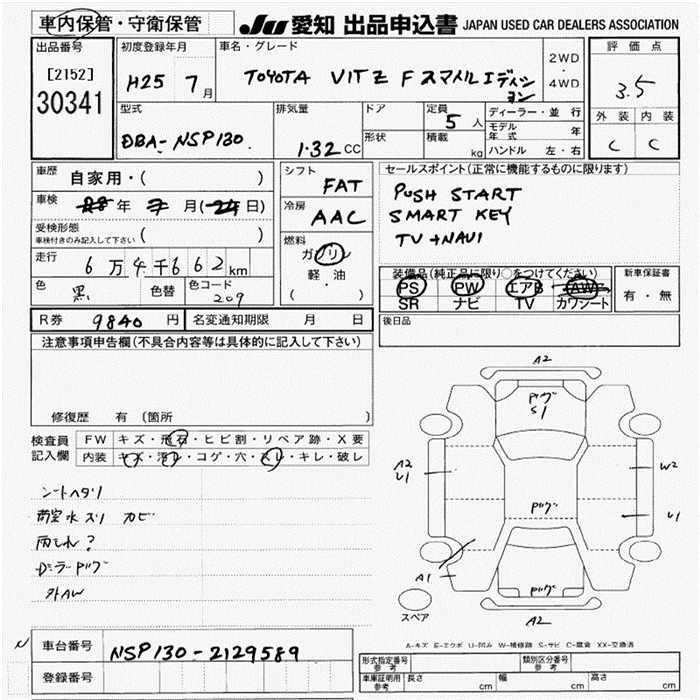 車内保管・守衛保管 JU 愛知 出品申込書 JAPAN USED CAR DEALERS ASSOCIATION
出品番号 初度登録年月 車名・グレード 2WD・4WD 評価点
[2152] H25 7月 TOYOTA VITZ F スマイルエディション 3.5
30341
型式 排気量 ドア 定員 5人 ディーラー・並行 外装 内装
DBA-NSP130 1.32 CC 形状 積載 kg モデル年式 年 C C
ハンドル 左・右
車歴 自家用・( ) シフト FAT セールスポイント(正常に機能するものに限ります)
車検 年 月( 日) 冷房 AAC PUSH START
受検形態 SMART KEY
車検付きのみ記入して下さい ( ) 燃料 TV+NAVI
走行 6万4千662km ガソリン
軽・油
( ・ )
色 黒 色替 色コード 209 装備品(純正品に限り○をつけてください) 新車保証書
PS PW エアB AW 有・無
SR ナビ TV カワシート
R券 9840円 名変通知期限 月 日 後日品
注意事項申告欄(不具合内容等は具体的に記入して下さい)
修復歴 有 〔箇所 〕
検査員記入欄 FW キズ・飛石・ヒビ割・リペア跡・X要
内装 キズ・汚レ・コゲ・穴・スレ・キレ・破レ
シートヘタリ
荷室水スリ カビ
雨もれ?
外AW
A2
S1
A2
U1
W2
U1
A1
A2
スペア
A-キズ E-エクボ U-凹み W-補修跡 S-サビ C-腐食 XX-交換済
車台番号 NSP130-2129589
登録番号
形式指定番号 参考 類別区分番号 参考
車庫証明用 参考 長さ cm 幅 cm 高さ cm